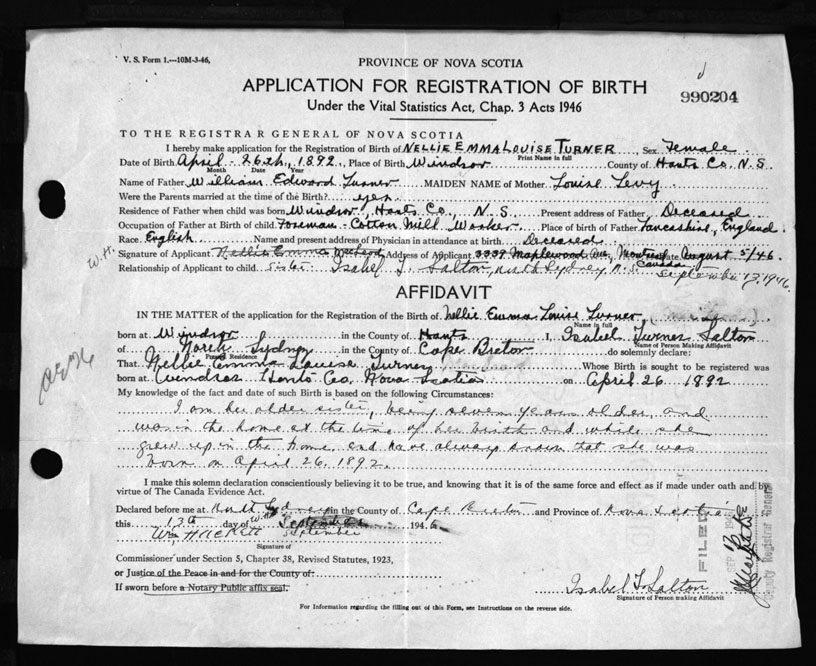 V. S. Form 1.---10M-3-46.
PROVINCE OF NOVA SCOTIA
APPLICATION FOR REGISTRATION OF BIRTH
990204
Under the Vital Statistics Act, Chap. 3 Acts 1946
TO THE REGISTRAR GENERAL OF NOVA SCOTIA
I hereby make application for the Registration of Birth of NELLIE EMMA LOUISE TURNER Sex Female
Print Name in full
Date of Birth April - 26th, 1892. Place of Birth Windsor County of Hants Co. N.S.
Month Date Year
Name of Father William Edward Turner MAIDEN NAME of Mother Louise Levy.
Were the Parents married at the time of the Birth? yes
Residence of Father when child was born Windsor, Hants Co., N.S. Present address of Father Deceased
Occupation of Father at Birth of child Foreman - Cotton Mill Worker Place of birth of Father Lancashire, England
Race English Name and present address of Physician in attendance at birth Deceased
W.H. Signature of Applicant Nellie Emma Address of Applicant 3339 Maplewood Ave, Montreal Date August 5/46.
Canada
Relationship of Applicant to child sister Isabel T. Salton, North Sydney N.S. September 13, 1946.
AFFIDAVIT
IN THE MATTER of the application for the Registration of the Birth of Nellie Emma Louise Turner
Name in full
born at Windsor in the County of Hants I, Isabel Turner Salton
Name of Person Making Affidavit
of North Sydney in the County of Cape Breton do solemnly declare:
Present Residence
That Nellie Emma Louise Turner Whose Birth is sought to be registered was
born at Windsor Hants Co, Nova Scotia on April 26 1892
My knowledge of the fact and date of such Birth is based on the following Circumstances:
I am her older sister, being seven years older, and
was in the home at the time of her birth and while she
grew up in the home, and have always known that she was
born on April 26, 1892.
I make this solemn declaration conscientiously believing it to be true, and knowing that it is of the same force and effect as if made under oath and by
virtue of The Canada Evidence Act.
Declared before me at North Sydney in the County of Cape Breton and Province of Nova Scotia
this 13th day of September 1946
W.H. September
Wm Hackett
Signature of
Commissioner under Section 5, Chapter 38, Revised Statutes, 1923,
or Justice of the Peace in and for the County of
If sworn before a Notary Public affix seal.
Isabel T. Salton
Signature of Person making Affidavit
For Information regarding the filling out of this Form, see Instructions on the reverse side.
FILED
SEP 17 194
Deputy Registrar General